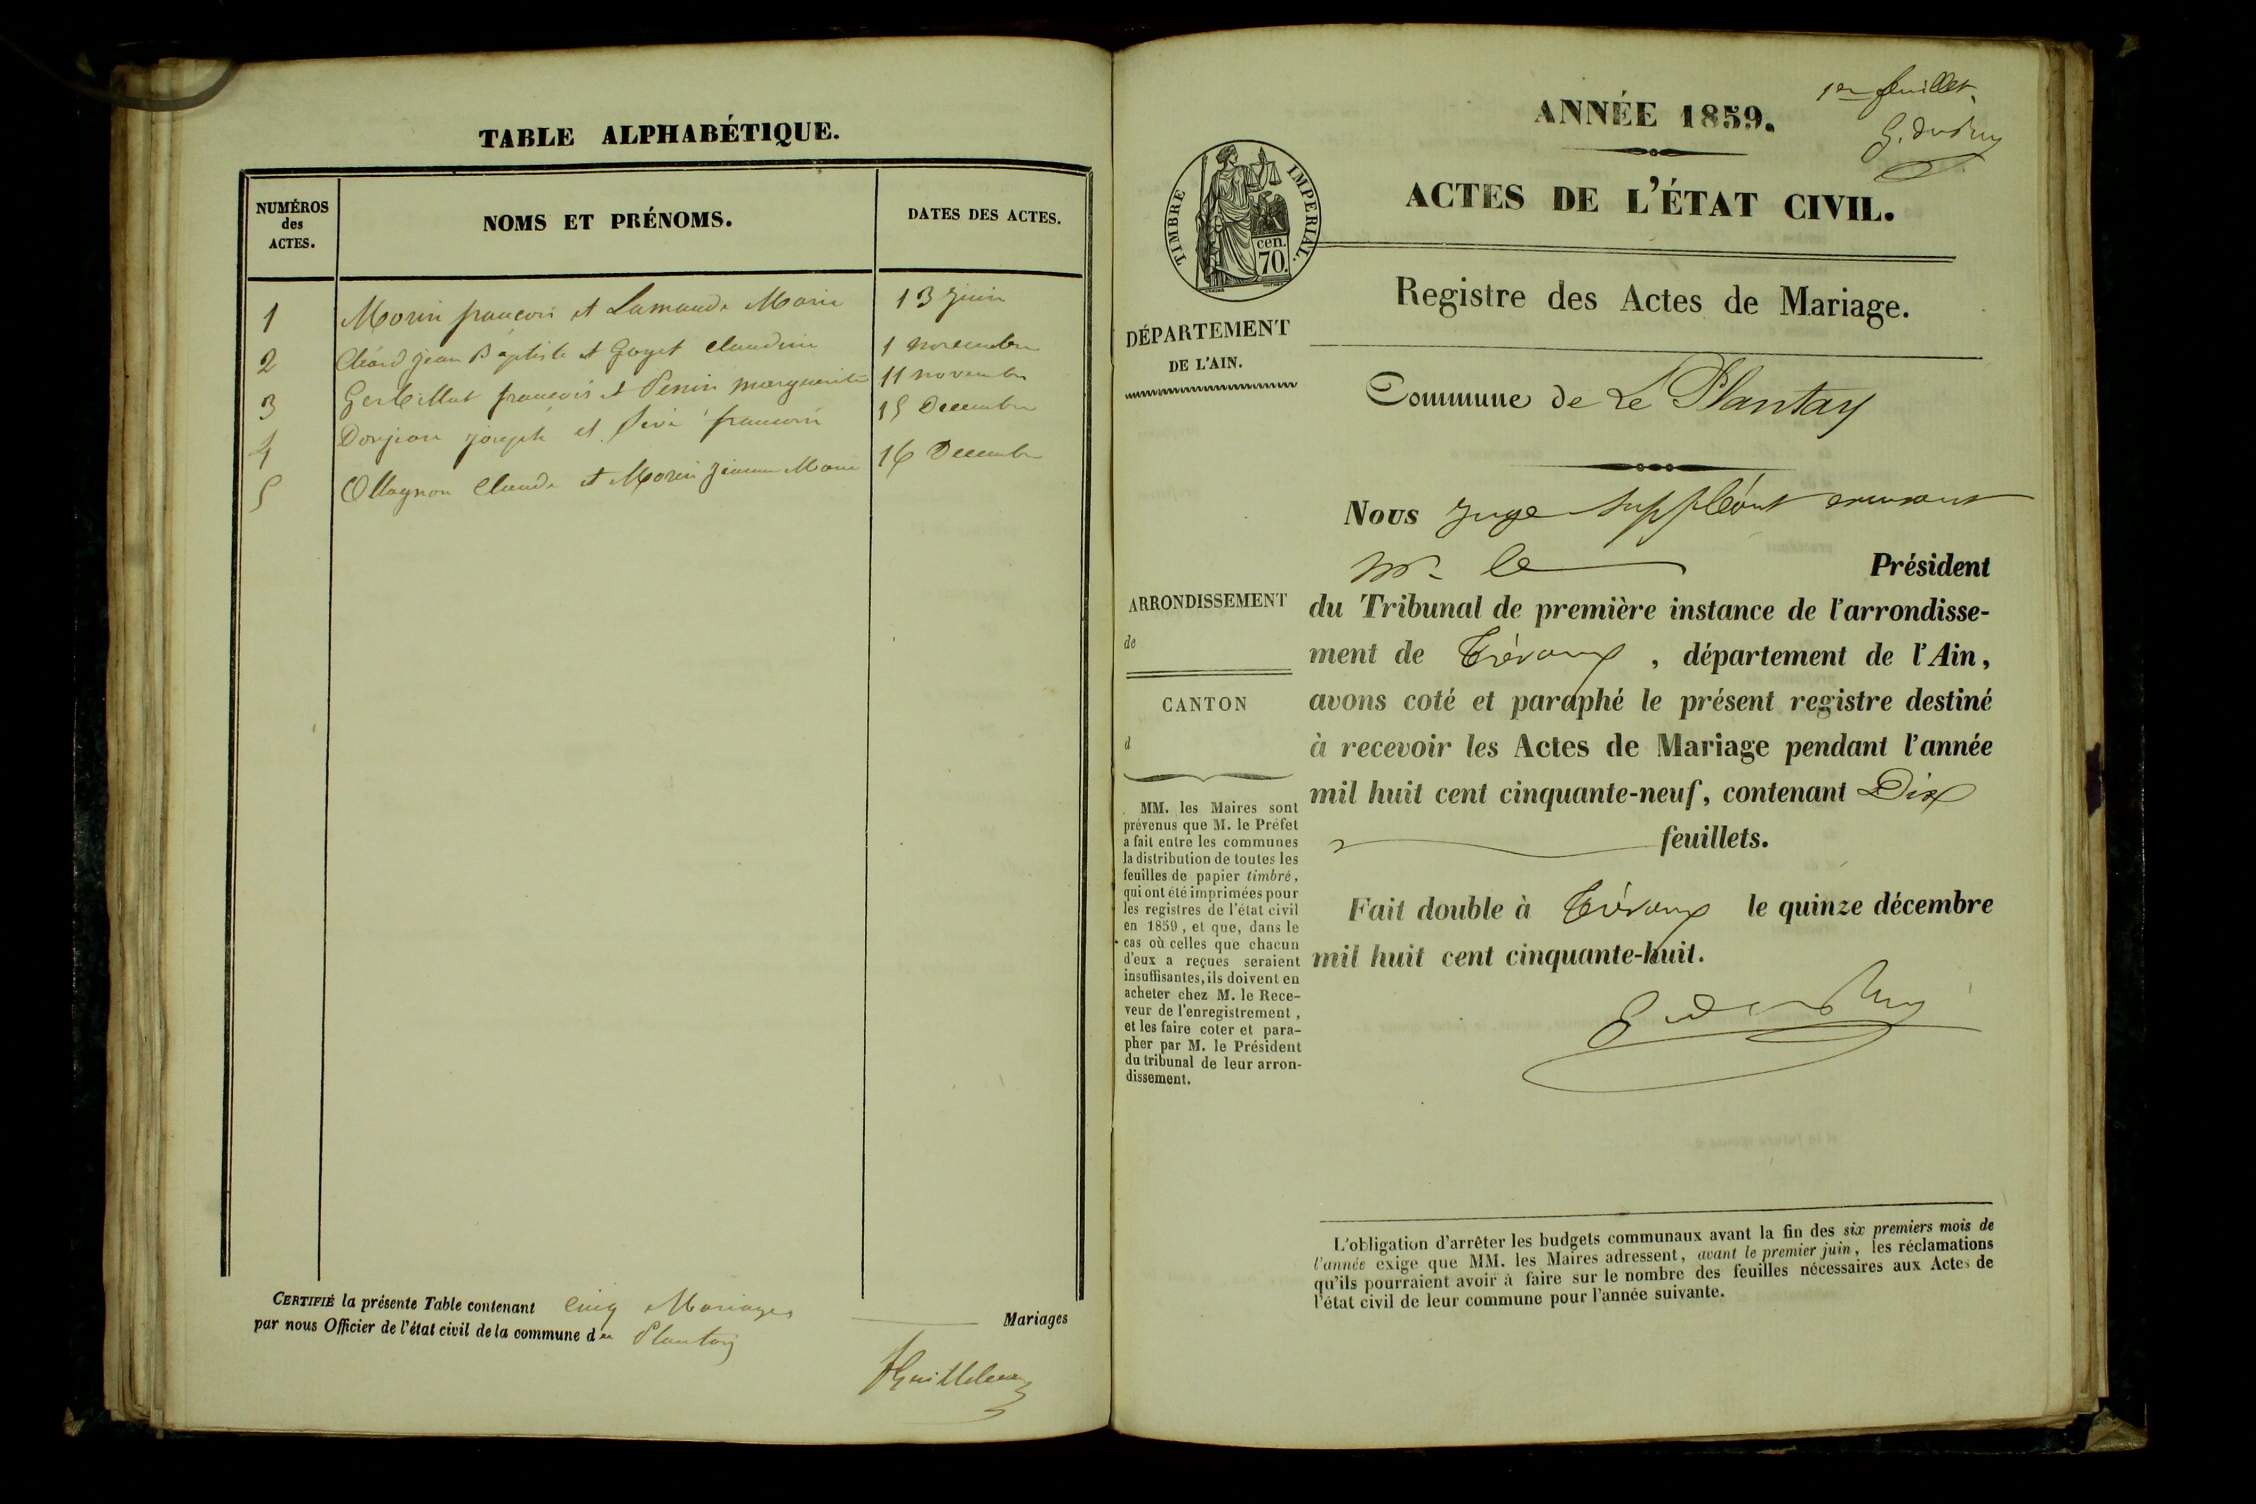 TABLE ALPHABÉTIQUE.
NUMÉROS
des
ACTES.
NOMS ET PRÉNOMS.
DATES DES ACTES.
1 Morin françois et Lamande Marie 13 Juin
2 jean Baptiste et Goyet Claudine 1 novembre
3 Gerbillat françois et Perrin marguerite 11 novembre
4 Donjeon joseph et françoise 15 Decembre
5 Ollagnon Claude et Morin Jeanne Marie 16 Decembre
CERTIFIÉ la présente Table contenant Cinq Mariages Mariages
par nous Officier de l'état civil de la commune du Plantay
1er feuillet
ANNÉE 1859.
ACTES DE L'ÉTAT CIVIL.
TIMBRE IMPERIAL.
cen.
70.
Registre des Actes de Mariage.
DÉPARTEMENT
DE L'AIN.
Commune de Le Plantay
Nous Juge Suppléant
Mr. le Président
ARRONDISSEMENT
de
CANTON
d
du Tribunal de première instance de l'arrondisse-
ment de Trévoux, département de l'Ain,
avons coté et paraphé le présent registre destiné
à recevoir les Actes de Mariage pendant l'année
mil huit cent cinquante-neuf, contenant Dix
feuillets.
Fait double à Trévoux le quinze décembre
mil huit cent cinquante-huit.
MM. les Maires sont
prévenus que M. le Préfet
a fait entre les communes
la distribution de toutes les
feuilles de papier timbré,
qui ont été imprimées pour
les registres de l'état civil
en 1859, et que, dans le
cas où celles que chacun
d'eux a reçues seraient
insuffisantes, ils doivent en
acheter chez M. le Rece-
veur de l'enregistrement,
et les faire coter et para-
pher par M. le Président
du tribunal de leur arron-
dissement.
L'obligation d'arrêter les budgets communaux avant la fin des six premiers mois de
l'année exige que MM. les Maires adressent, avant le premier juin, les réclamations
qu'ils pourraient avoir à faire sur le nombre des feuilles nécessaires aux Actes de
l'état civil de leur commune pour l'année suivante.